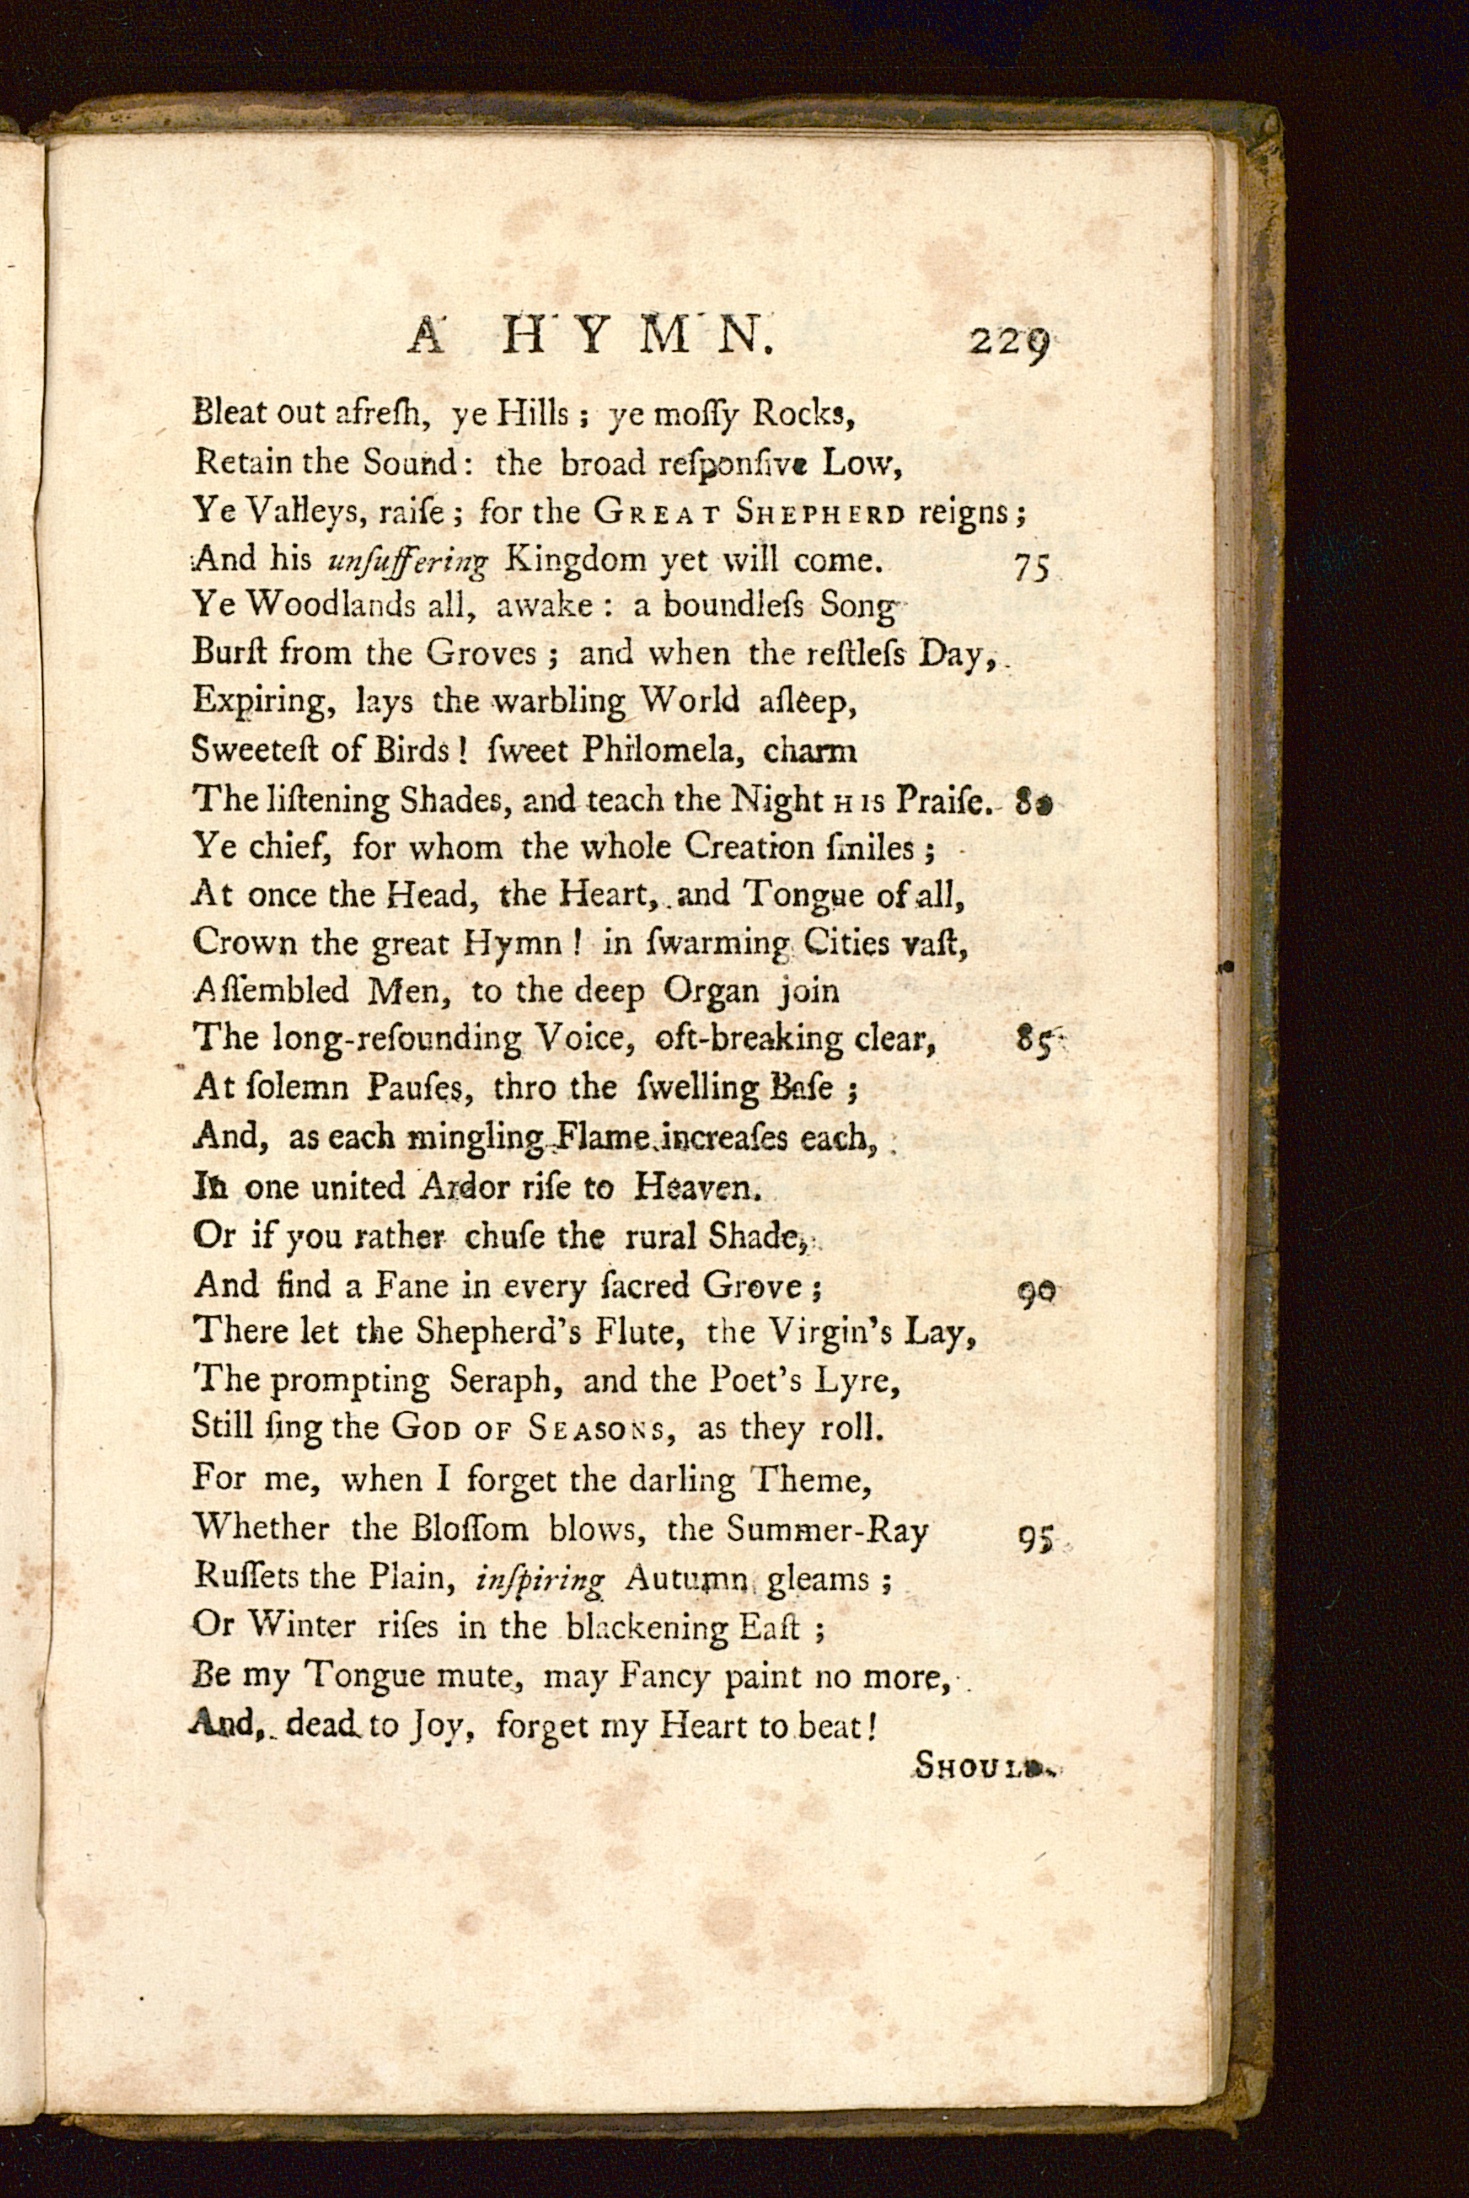 A HYMN. 229
Bleat out afreſh, ye Hills; ye moſſy Rocks,
Retain the Sound: the broad reſponſive Low,
Ye Valleys, raiſe; for the GREAT SHEPHERD reigns;
And his unſuffering Kingdom yet will come. 75
Ye Woodlands all, awake: a boundleſs Song
Burſt from the Groves; and when the reſtleſs Day,
Expiring, lays the warbling World aſleep,
Sweeteſt of Birds! ſweet Philomela, charm
The liſtening Shades, and teach the Night HIS Praiſe. 80
Ye chief, for whom the whole Creation ſmiles;
At once the Head, the Heart, and Tongue of all,
Crown the great Hymn! in ſwarming Cities vaſt,
Aſſembled Men, to the deep Organ join
The long-reſounding Voice, oft-breaking clear, 85
At ſolemn Pauſes, thro the ſwelling Baſe;
And, as each mingling Flame increaſes each,
In one united Ardor riſe to Heaven.
Or if you rather chuſe the rural Shade,
And find a Fane in every ſacred Grove; 90
There let the Shepherd's Flute, the Virgin's Lay,
The prompting Seraph, and the Poet's Lyre,
Still ſing the GOD OF SEASONS, as they roll.
For me, when I forget the darling Theme,
Whether the Bloſſom blows, the Summer-Ray 95
Ruſſets the Plain, inſpiring Autumn gleams;
Or Winter riſes in the blackening Eaſt;
Be my Tongue mute, may Fancy paint no more,
And, dead to Joy, forget my Heart to beat!
SHOULD